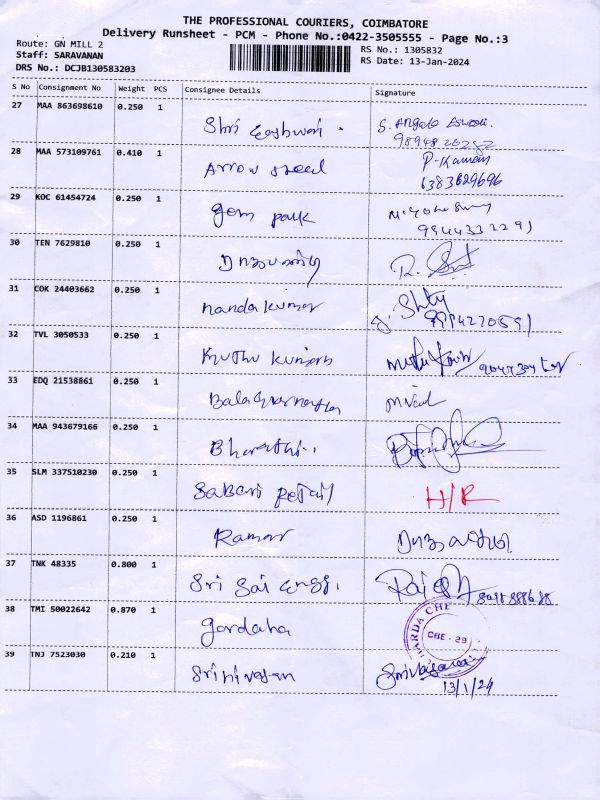 THE PROFESSIONAL COURIERS, COIMBATORE
Delivery Runsheet - PCM - Phone No.:0422-3505555 - Page No.:3
Route: GN MILL 2
Staff: SARAVANAN
DRS No.: DCJB130583203
RS No.: 1305832
RS Date: 13-Jan-2024
S No Consignment No Weight PCS Consignee Details Signature
27 MAA 863698610 0.250 1 Shri Eashwari S. Angala
28 MAA 573109761 0.410 1 Arrow steed P-Kannan
6383629696
29 KOC 61454724 0.250 1 gem park
9944332291
30 TEN 7629810 0.250 1 R.
31 COK 24403662 0.250 1 nanda kumar
32 TVL 3050533 0.250 1 Muthu
33 EDQ 21538861 0.250 1
34 MAA 943679166 0.250 1 Bharathi
35 SLM 337510230 0.250 1 Sabari Retail H/R
36 ASD 1196861 0.250 1 Ramar
37 TNK 48335 0.800 1 Sri Sai engg. Rajesh
38 TMI 50022642 0.870 1 gardaha CBE - 29
39 TNJ 7523030 0.210 1 Srinivasan
13/1/24